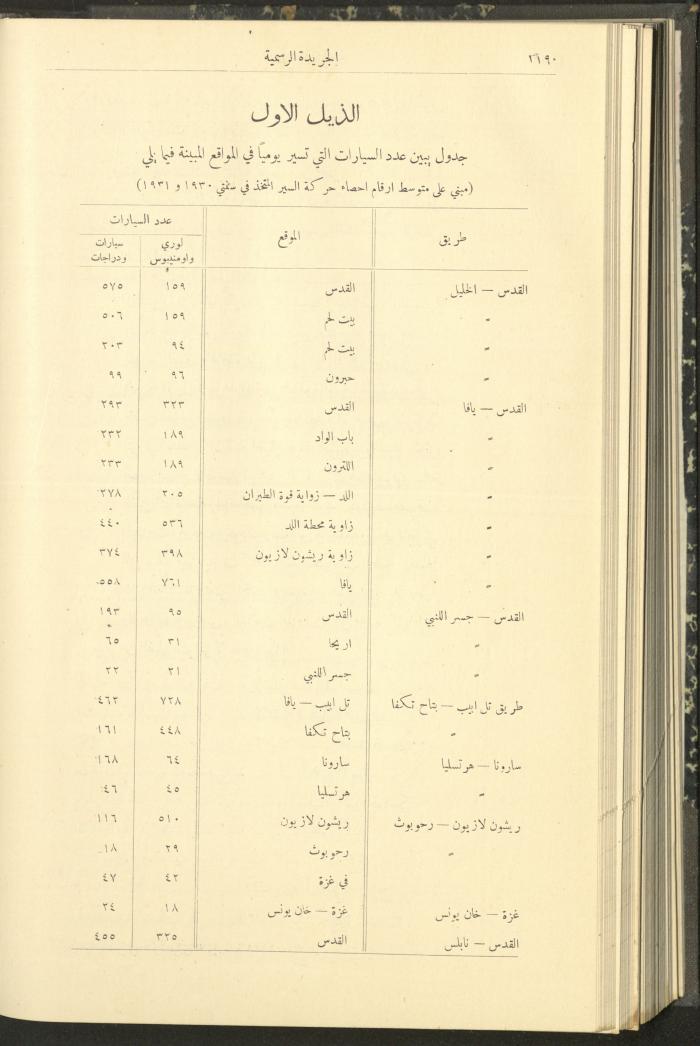 ٢١٩٠ الجريدة الرسمية
الذيل الاول
جدول يبين عدد السيارات التي تسير يومياً في المواقع المبينة فيما يلي
(مبني على متوسط ارقام احصاء حركة السير المتخذ في سنتي ١٩٣٠ و ١٩٣١)
طريق الموقع عدد السيارات
لوري واومنيبوس سيارات ودراجات
القدس — الخليل القدس ١٥٩ ٥٧٥
" بيت لحم ١٥٩ ٥٠٦
" بيت لحم ٩٤ ٢٠٣
" حبرون ٩٦ ٩٩
القدس — يافا القدس ٣٢٣ ٢٩٣
" باب الواد ١٨٩ ٢٣٢
" اللترون ١٨٩ ٢٣٣
" اللد — زواية قوة الطيران ٢٠٥ ٢٧٨
" زاوية محطة اللد ٥٣٦ ٤٤٠
" زاوية ريشون لازيون ٣٩٨ ٣٧٤
" يافا ٧٦١ ٥٥٨
القدس — جسر اللنبي القدس ٩٥ ١٩٣
" اريحا ٣١ ٦٥
" جسر اللنبي ٢١ ٢٢
طريق تل ابيب — بتاح تكفا تل ابيب — يافا ٧٢٨ ٤٦٢
" بتاح تكفا ٤٤٨ ١٦١
سارونا — هرتسليا سارونا ٦٤ ١٦٨
" هرتسليا ٤٥ ٤٦
ريشون لازيون — رحوبوث ريشون لازيون ٥١٠ ١١٦
" رحوبوث ٢٩ ١٨
في غزة ٤٢ ٤٧
غزة — خان يونس غزة — خان يونس ١٨ ٢٤
القدس — نابلس القدس ٣٢٥ ٤٥٥